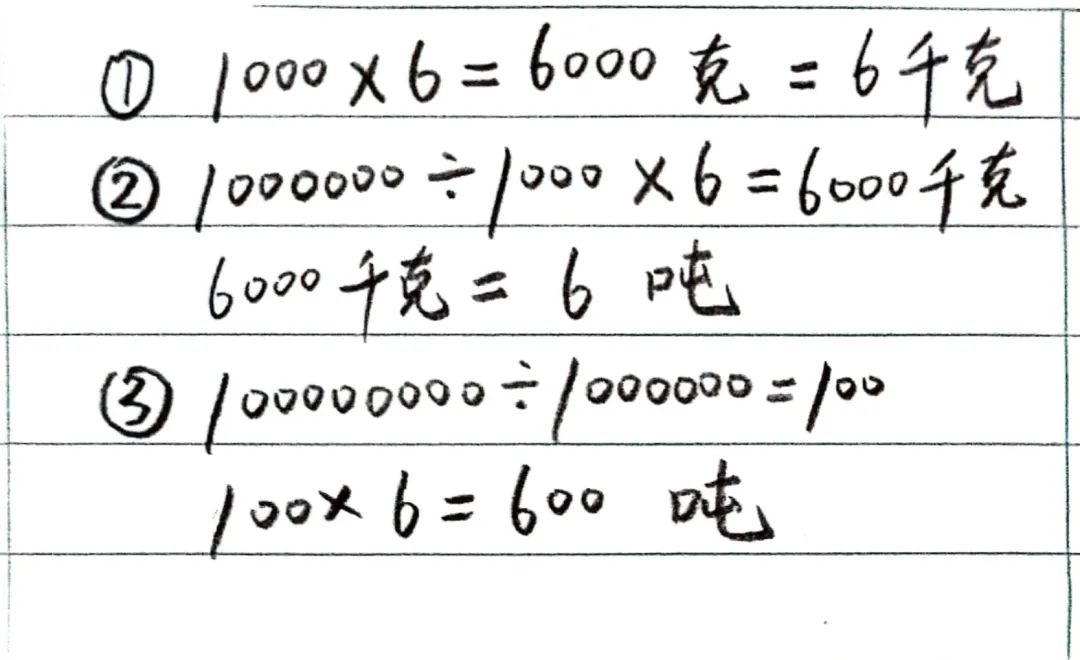 ① 1000×6=6000克=6千克
② 1000000÷1000×6=6000千克
6000千克=6吨
③ 100000000÷1000000=100
100×6=600吨